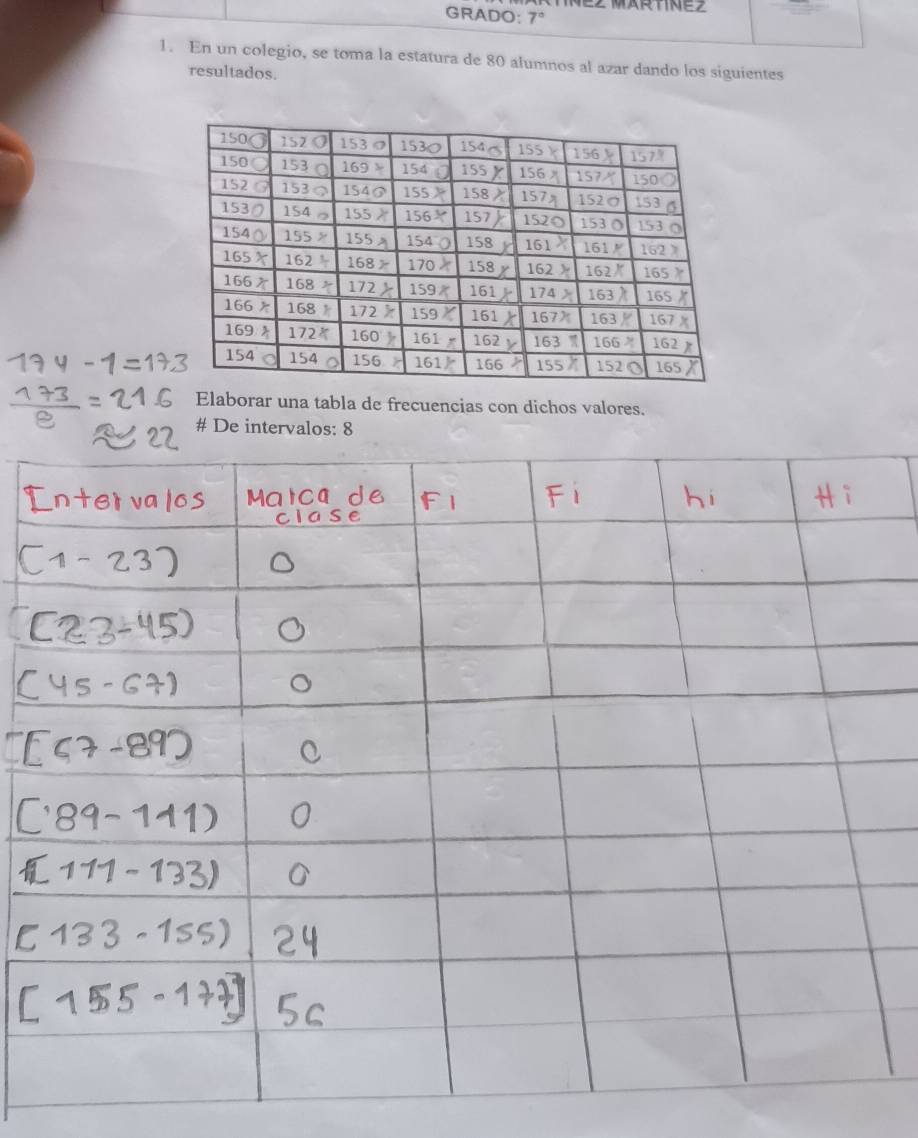 MARTINEZ
GRADO: 7°
1. En un colegio, se toma la estatura de 80 alumnos al azar dando los siguientes
resultados.
150 152 153 153 154 155 156 157
150 153 169 154 155 156 157 150
152 153 154 155 158 157 152 153
153 154 155 156 157 152 153 153
154 155 155 154 158 161 161 162
165 162 168 170 158 162 162 165
166 168 172 159 161 174 163 165
166 168 172 159 161 167 163 167
169 172 160 161 162 163 166 162
154 154 156 161 166 155 152 165
174 - 1 = 173
173/8 = 21.6
≈ 22
Elaborar una tabla de frecuencias con dichos valores.
# De intervalos: 8
Intervalos Marca de clase Fi Fi hi Hi
[1 - 23) 0
[23 - 45) 0
[45 - 67) 0
[67 - 89) 0
[89 - 111) 0
[111 - 133) 0
[133 - 155) 24
[155 - 177] 56